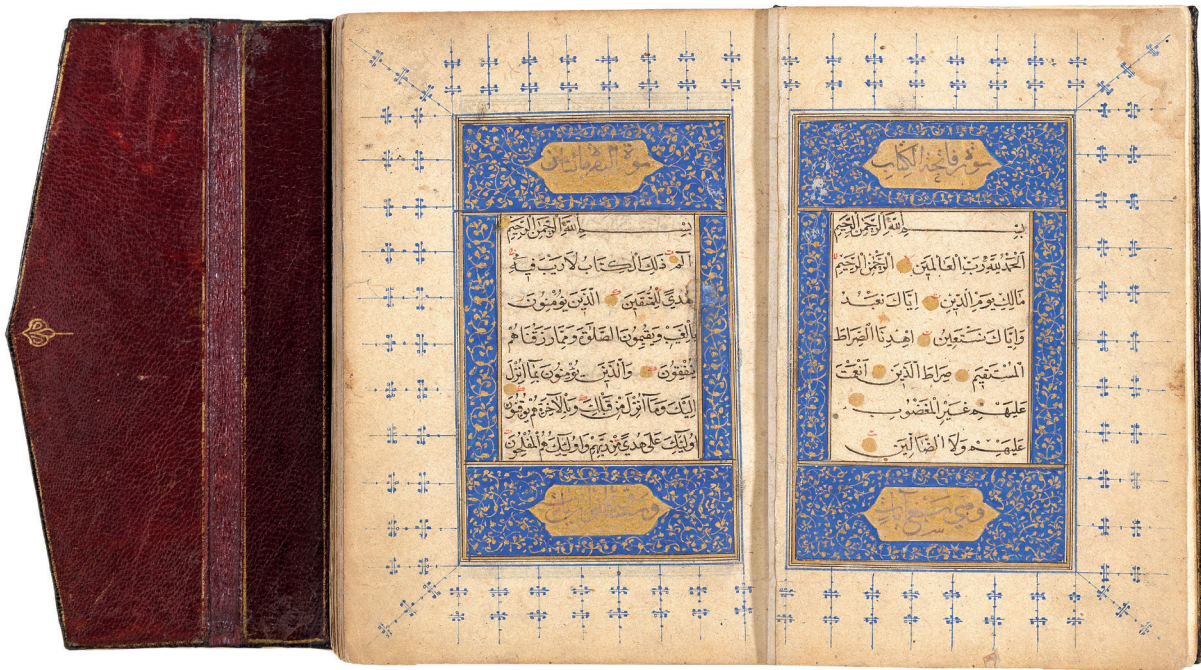 سورة فاتحة الكتاب
بِسْمِ اللَّهِ الرَّحْمَنِ الرَّحِيمِ
اَلْحَمْدُ لِلَّهِ رَبِّ الْعَالَمِينَ الرَّحْمَنِ الرَّحِيمِ
مَالِكِ يَوْمِ الدِّينِ اِيَّاكَ نَعْبُدُ
وَاِيَّاكَ نَسْتَعِينُ اِهْدِنَا الصِّرَاطَ
الْمُسْتَقِيمَ صِرَاطَ الَّذِينَ اَنْعَمْتَ
عَلَيْهِمْ غَيْرِ الْمَغْضُوبِ
عَلَيْهِمْ وَلَا الضَّالِّينَ
وهي سبع آيات
سورة البقرة مائتان
بِسْمِ اللَّهِ الرَّحْمَنِ الرَّحِيمِ
الٓمٓ ذٰلِكَ الْكِتَابُ لَا رَيْبَ فِيهِ
هُدًى لِلْمُتَّقِينَ الَّذِينَ يُؤْمِنُونَ
بِالْغَيْبِ وَيُقِيمُونَ الصَّلٰوةَ وَمِمَّا رَزَقْنَاهُمْ
يُنْفِقُونَ وَالَّذِينَ يُؤْمِنُونَ بِمَٓا اُنْزِلَ
اِلَيْكَ وَمَٓا اُنْزِلَ مِنْ قَبْلِكَ وَبِالْاٰخِرَةِ هُمْ يُوقِنُونَ
اُولٰٓئِكَ عَلٰى هُدًى مِنْ رَبِّهِمْ وَاُولٰٓئِكَ هُمُ الْمُفْلِحُونَ